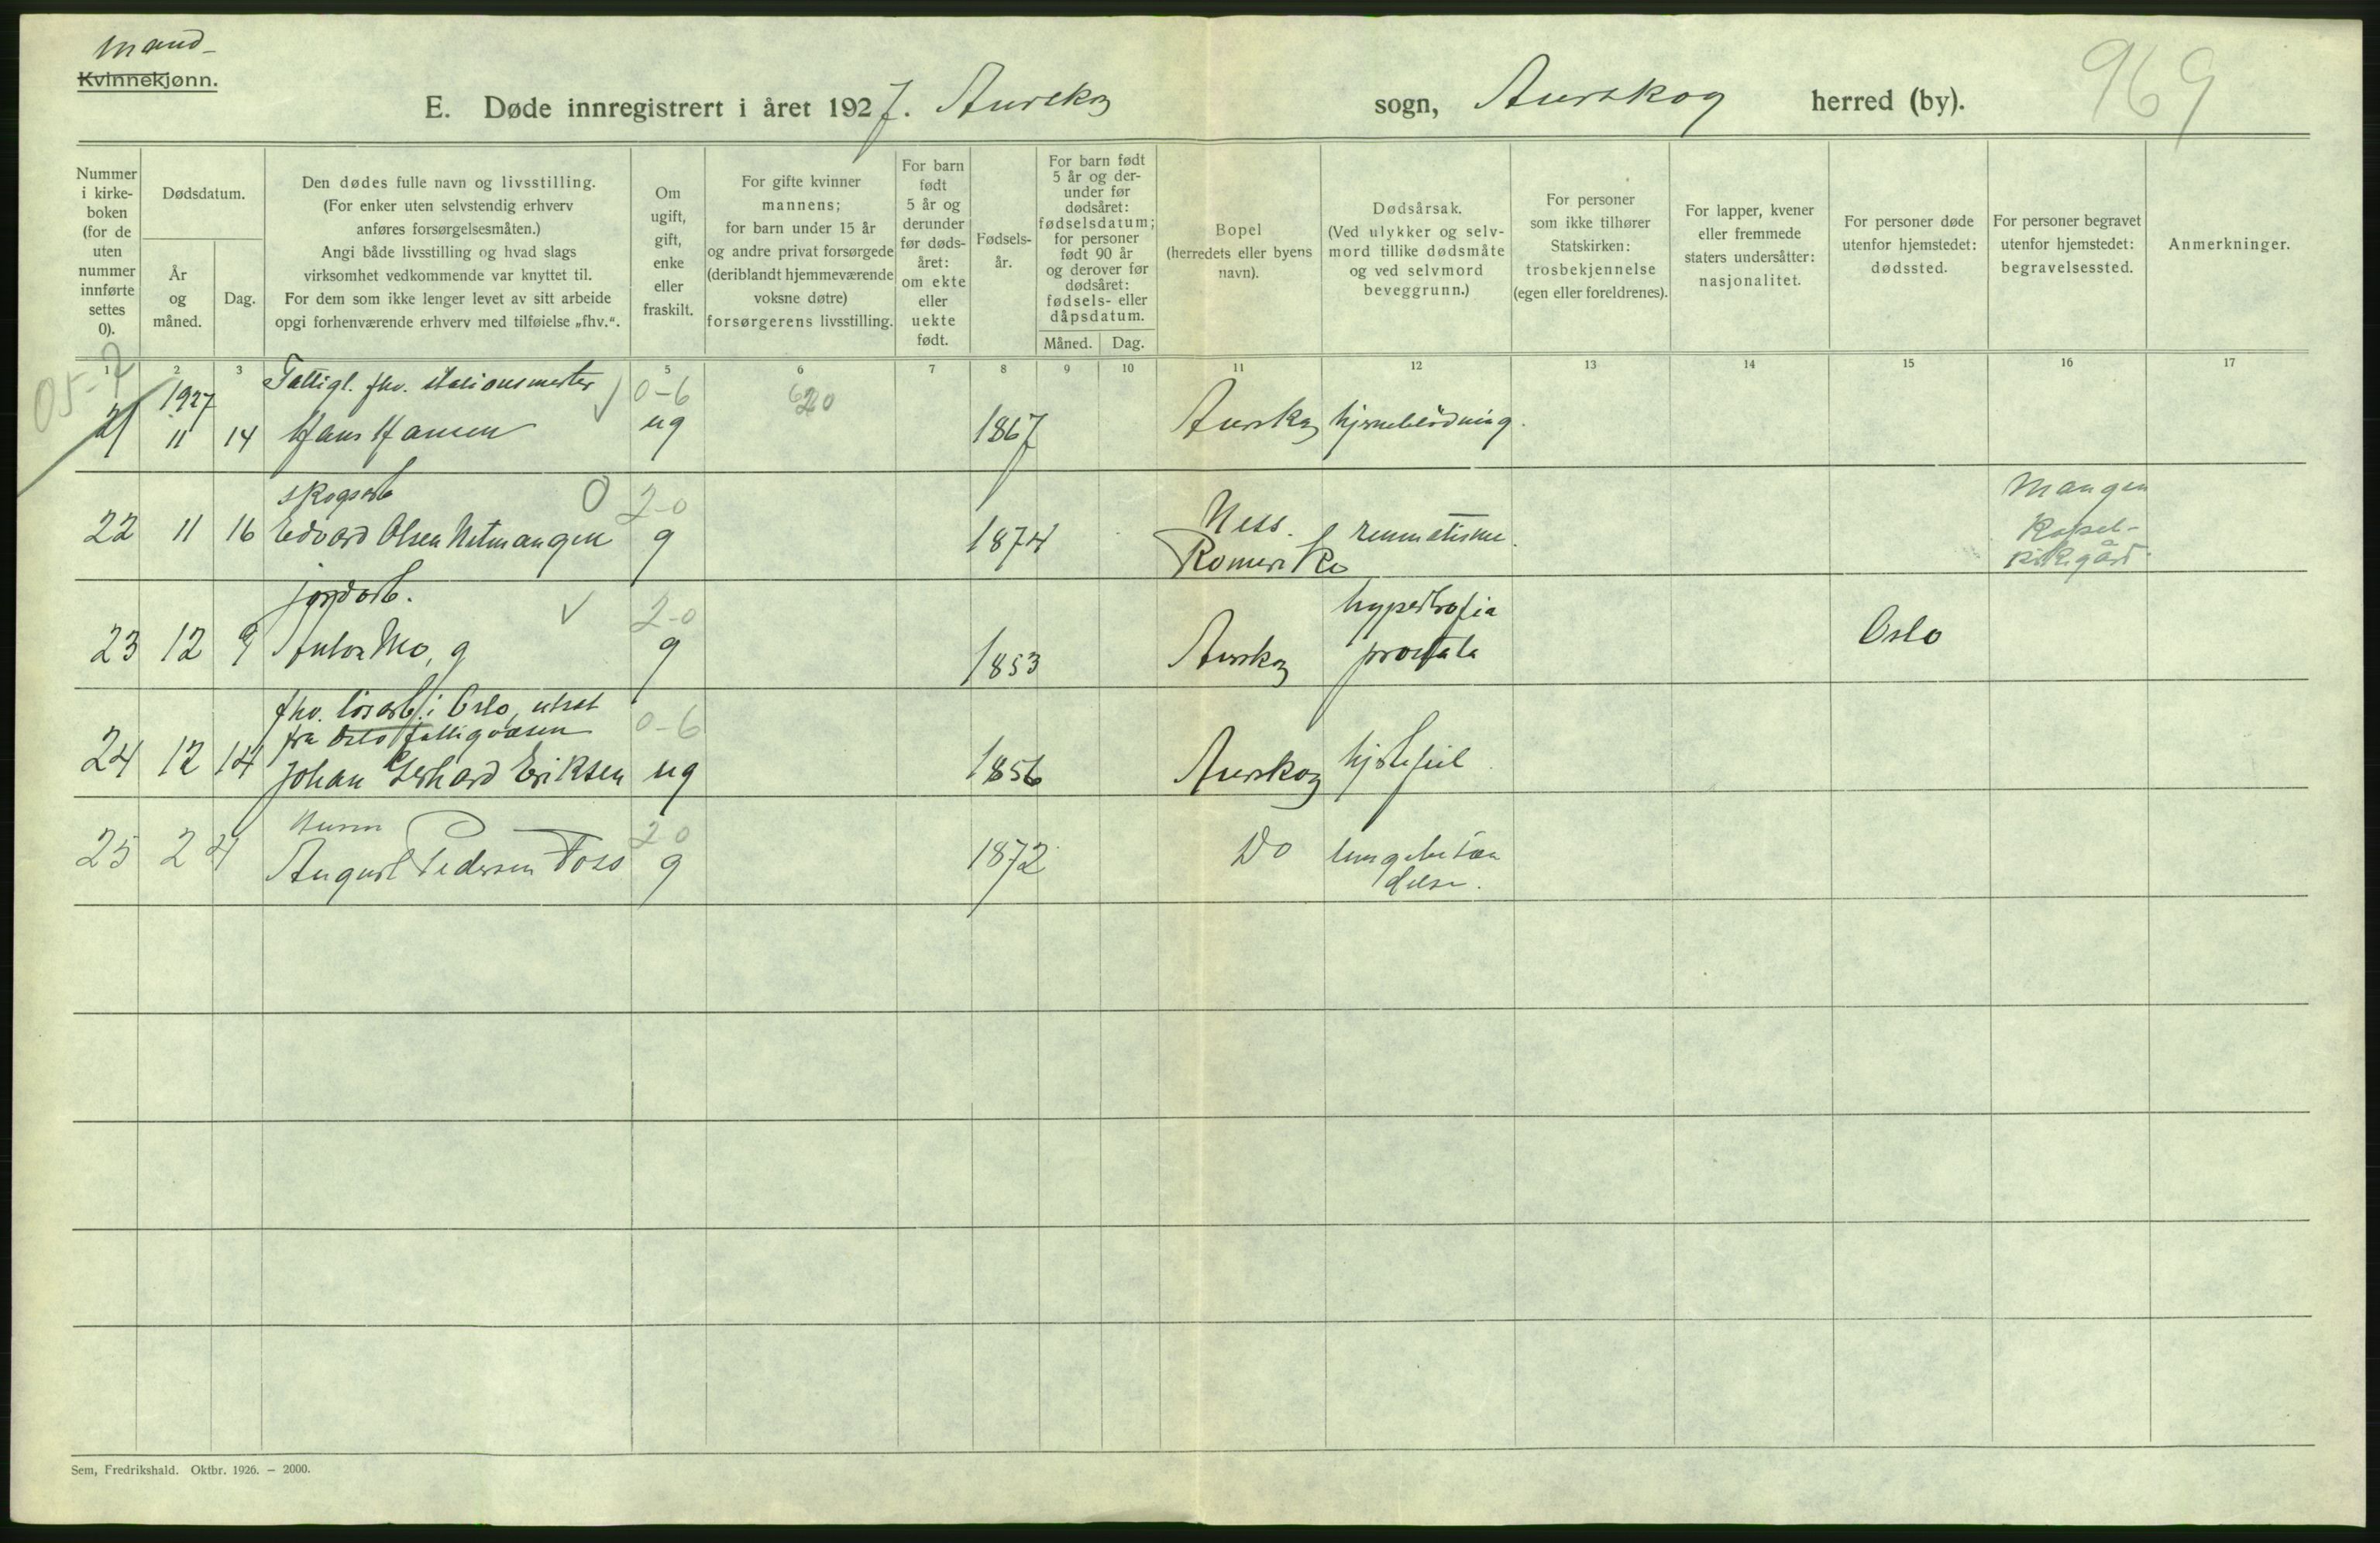 Mand-
Kvinnekjønn.
E. Døde innregistrert i året 1927. Aurskog sogn, Aurskog herred (by).
969
Nummer i kirke-boken (for de uten nummer innførte settes 0).
Dødsdatum.
År og måned.
Dag.
Den dødes fulle navn og livsstilling.
(For enker uten selvstendig erhverv
anføres forsørgelsesmåten.)
Angi både livsstilling og hvad slags
virksomhet vedkommende var knyttet til.
For dem som ikke lenger levet av sitt arbeide
opgi forhenværende erhverv med tilføielse „fhv.“.
Om ugift, gift, enke eller fraskilt.
For gifte kvinner
mannens;
for barn under 15 år
og andre privat forsørgede
(deriblandt hjemmeværende
voksne døtre)
forsørgerens livsstilling.
For barn født 5 år og derunder før døds-året: om ekte eller uekte født.
Fødsels-år.
For barn født 5 år og der-under før dødsåret: fødselsdatum; for personer født 90 år og derover før dødsåret: fødsels- eller dåpsdatum.
Måned.
Dag.
Bopel
(herredets eller byens
navn).
Dødsårsak.
(Ved ulykker og selv-
mord tillike dødsmåte
og ved selvmord
beveggrunn.)
For personer
som ikke tilhører
Statskirken:
trosbekjennelse
(egen eller foreldrenes).
For lapper, kvener
eller fremmede
staters undersåtter:
nasjonalitet.
For personer døde
utenfor hjemstedet:
dødssted.
For personer begravet
utenfor hjemstedet:
begravelsessted.
Anmerkninger.
1 2 3 5 6 7 8 9 10 11 12 13 14 15 16 17
05-7
1927 Fattigl. fhv. stasionsmester 0-6
21 11 14 Hans Hansen ug 1867 Aurskog hjerneblødning.
skogsarb 0 2-0
22 11 16 Edvard Olsen Netmangen g 1874 Ness. Romerike reumatisme. Mangen Kapel-kirkegård
jordarb. 2-0
23 12 9 Anton Mo, g g 1853 Aurskog hypertrofia prostata Oslo
fhv. løsarb. i Oslo, utsat
fra Oslo fattigvæsen 0-6
24 12 14 Johan Gerhard Eriksen ug 1856 Aurskog hjertefeil
20
25 2 4 August Pedersen Foss g 1872 Do lungebetændelse.
Sem, Fredrikshald. Oktbr. 1926. — 2000.